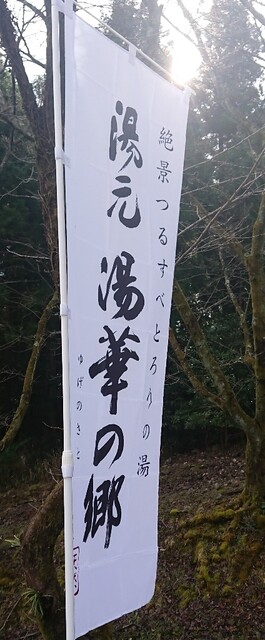 絶景つるすべとろりの湯
湯元 湯華の郷
ゆげのさと